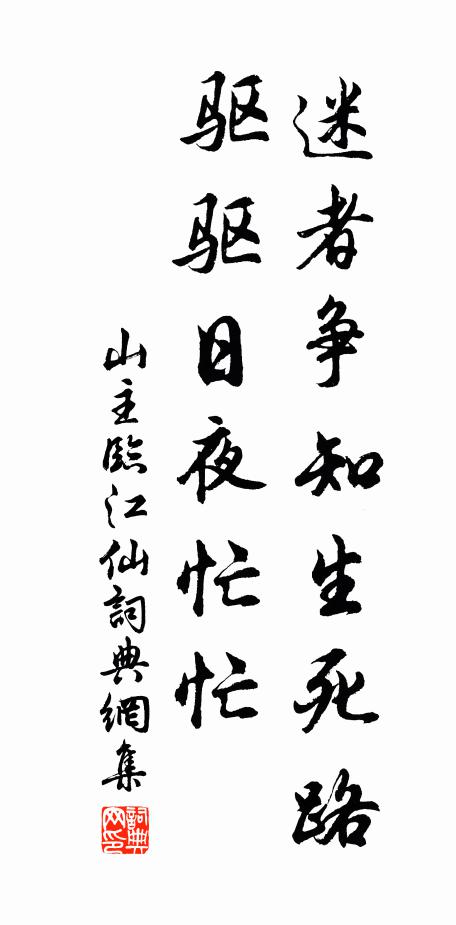 迷者争知生死路
驱驱日夜忙忙
山主臨江仙詞典網集
詞典网印